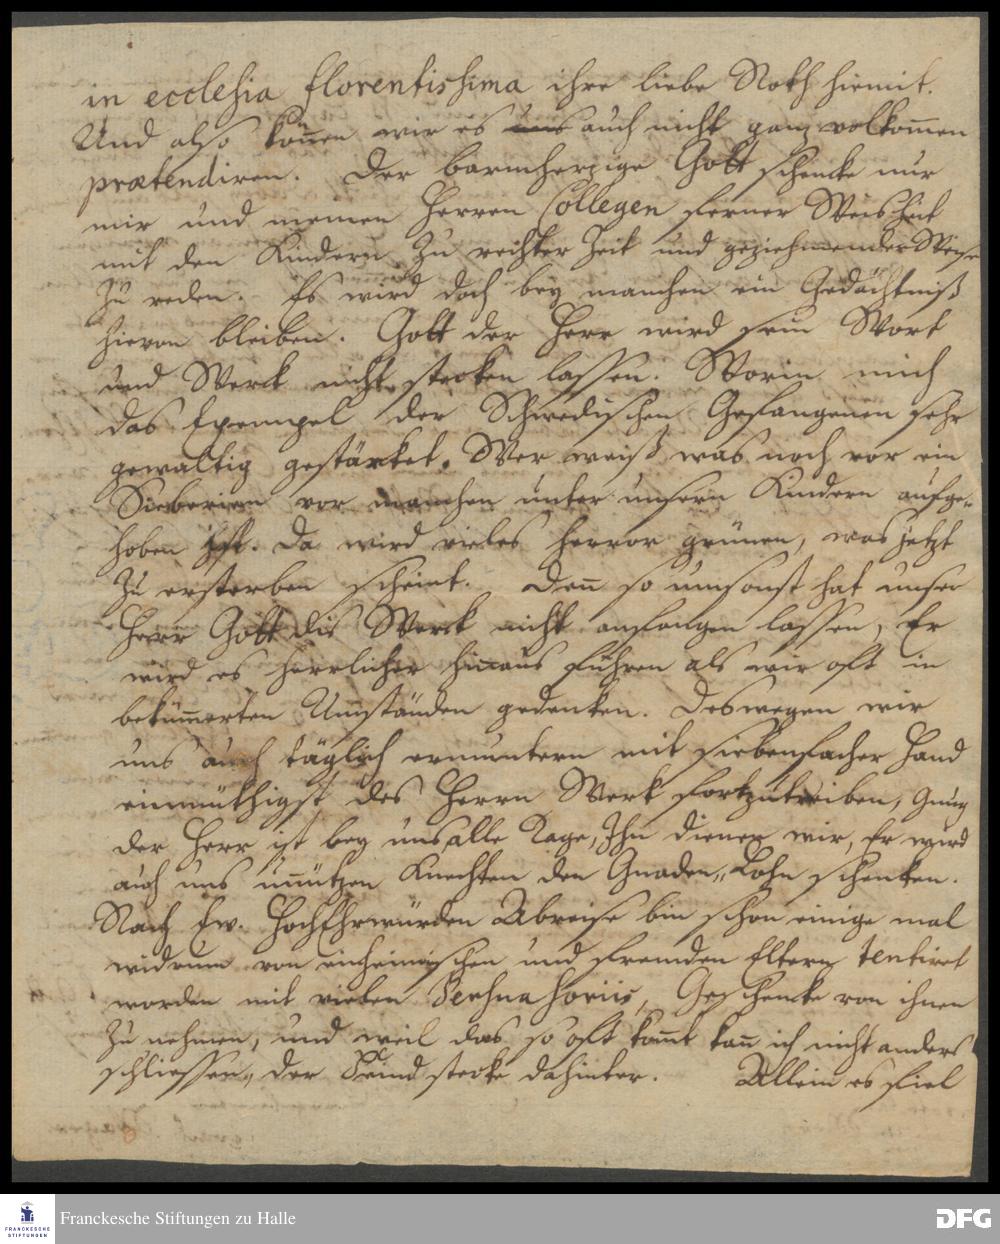 in ecclesia florentissima ihre liebe Noth hiemit.
Und also können wir es uns auch nicht ganz vollkommen
prætendiren. Der barmherzige Gott schencke nur
mir und meinen Herren Collegen ferner Weisheit
mit den Kindern zu rechter Zeit und geziehmender Weise
zu reden. Es wird doch bey manchen ein Gedächtniß
hievon bleiben. Gott der Herr wird sein Wort
und Werck nicht stecken lassen. Worin mich
das Exempel der Schwedischen Gefangenen sehr
gewaltig gestärcket. Wer weiß was noch vor ein
Sieberien vor manchen unter unsern Kindern aufge-
hoben ist. Da wird vieles hervor grünen, was jetzt
zu ersterben scheint. Denn so umsonst hat unser
Herr Gott dis Werck nicht anfangen lassen, Er
wird es herrlicher hinaus führen als wir oft in
bekümmerten Umständen gedencken. Deswegen wir
uns auch täglich ermuntern mit siebenfacher Hand
einmüthigst des Herrn Werk fortzutreiben, Gnug
der Herr ist bey uns alle Tage, Ihn dienen wir, Er wird
auch uns unnützen Knechten den Gnaden-Lohn schencken.
Nach Ew. HochEhrwürden Abreise bin schon einige mal
widrum von einheimischen und fremden Eltern tentiret
worden mit vielen Persuasoriis, Geschencke von ihnen
zu nehmen, und weil das so oft kommt kann ich nicht anders
schliessen, der Feind stecke dahinter. Allein es fiel
Franckesche Stiftungen zu Halle
FRANCKESCHE
STIFTUNGEN
DFG